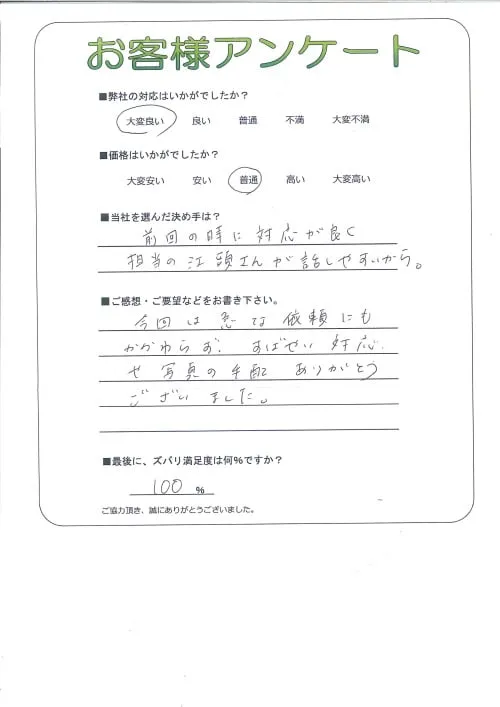 お客様アンケート
■弊社の対応はいかがでしたか？
大変良い 良い 普通 不満 大変不満
■価格はいかがでしたか？
大変安い 安い 普通 高い 大変高い
■当社を選んだ決め手は？
前回の時に対応が良く
担当の江頭さんが話しやすいから。
■ご感想・ご要望などをお書き下さい。
今回は急な依頼にも
かかわらず、すばやい対応
や写真の手配ありがとう
ございました。
■最後に、ズバリ満足度は何%ですか？
100 %
ご協力頂き、誠にありがとうございました。